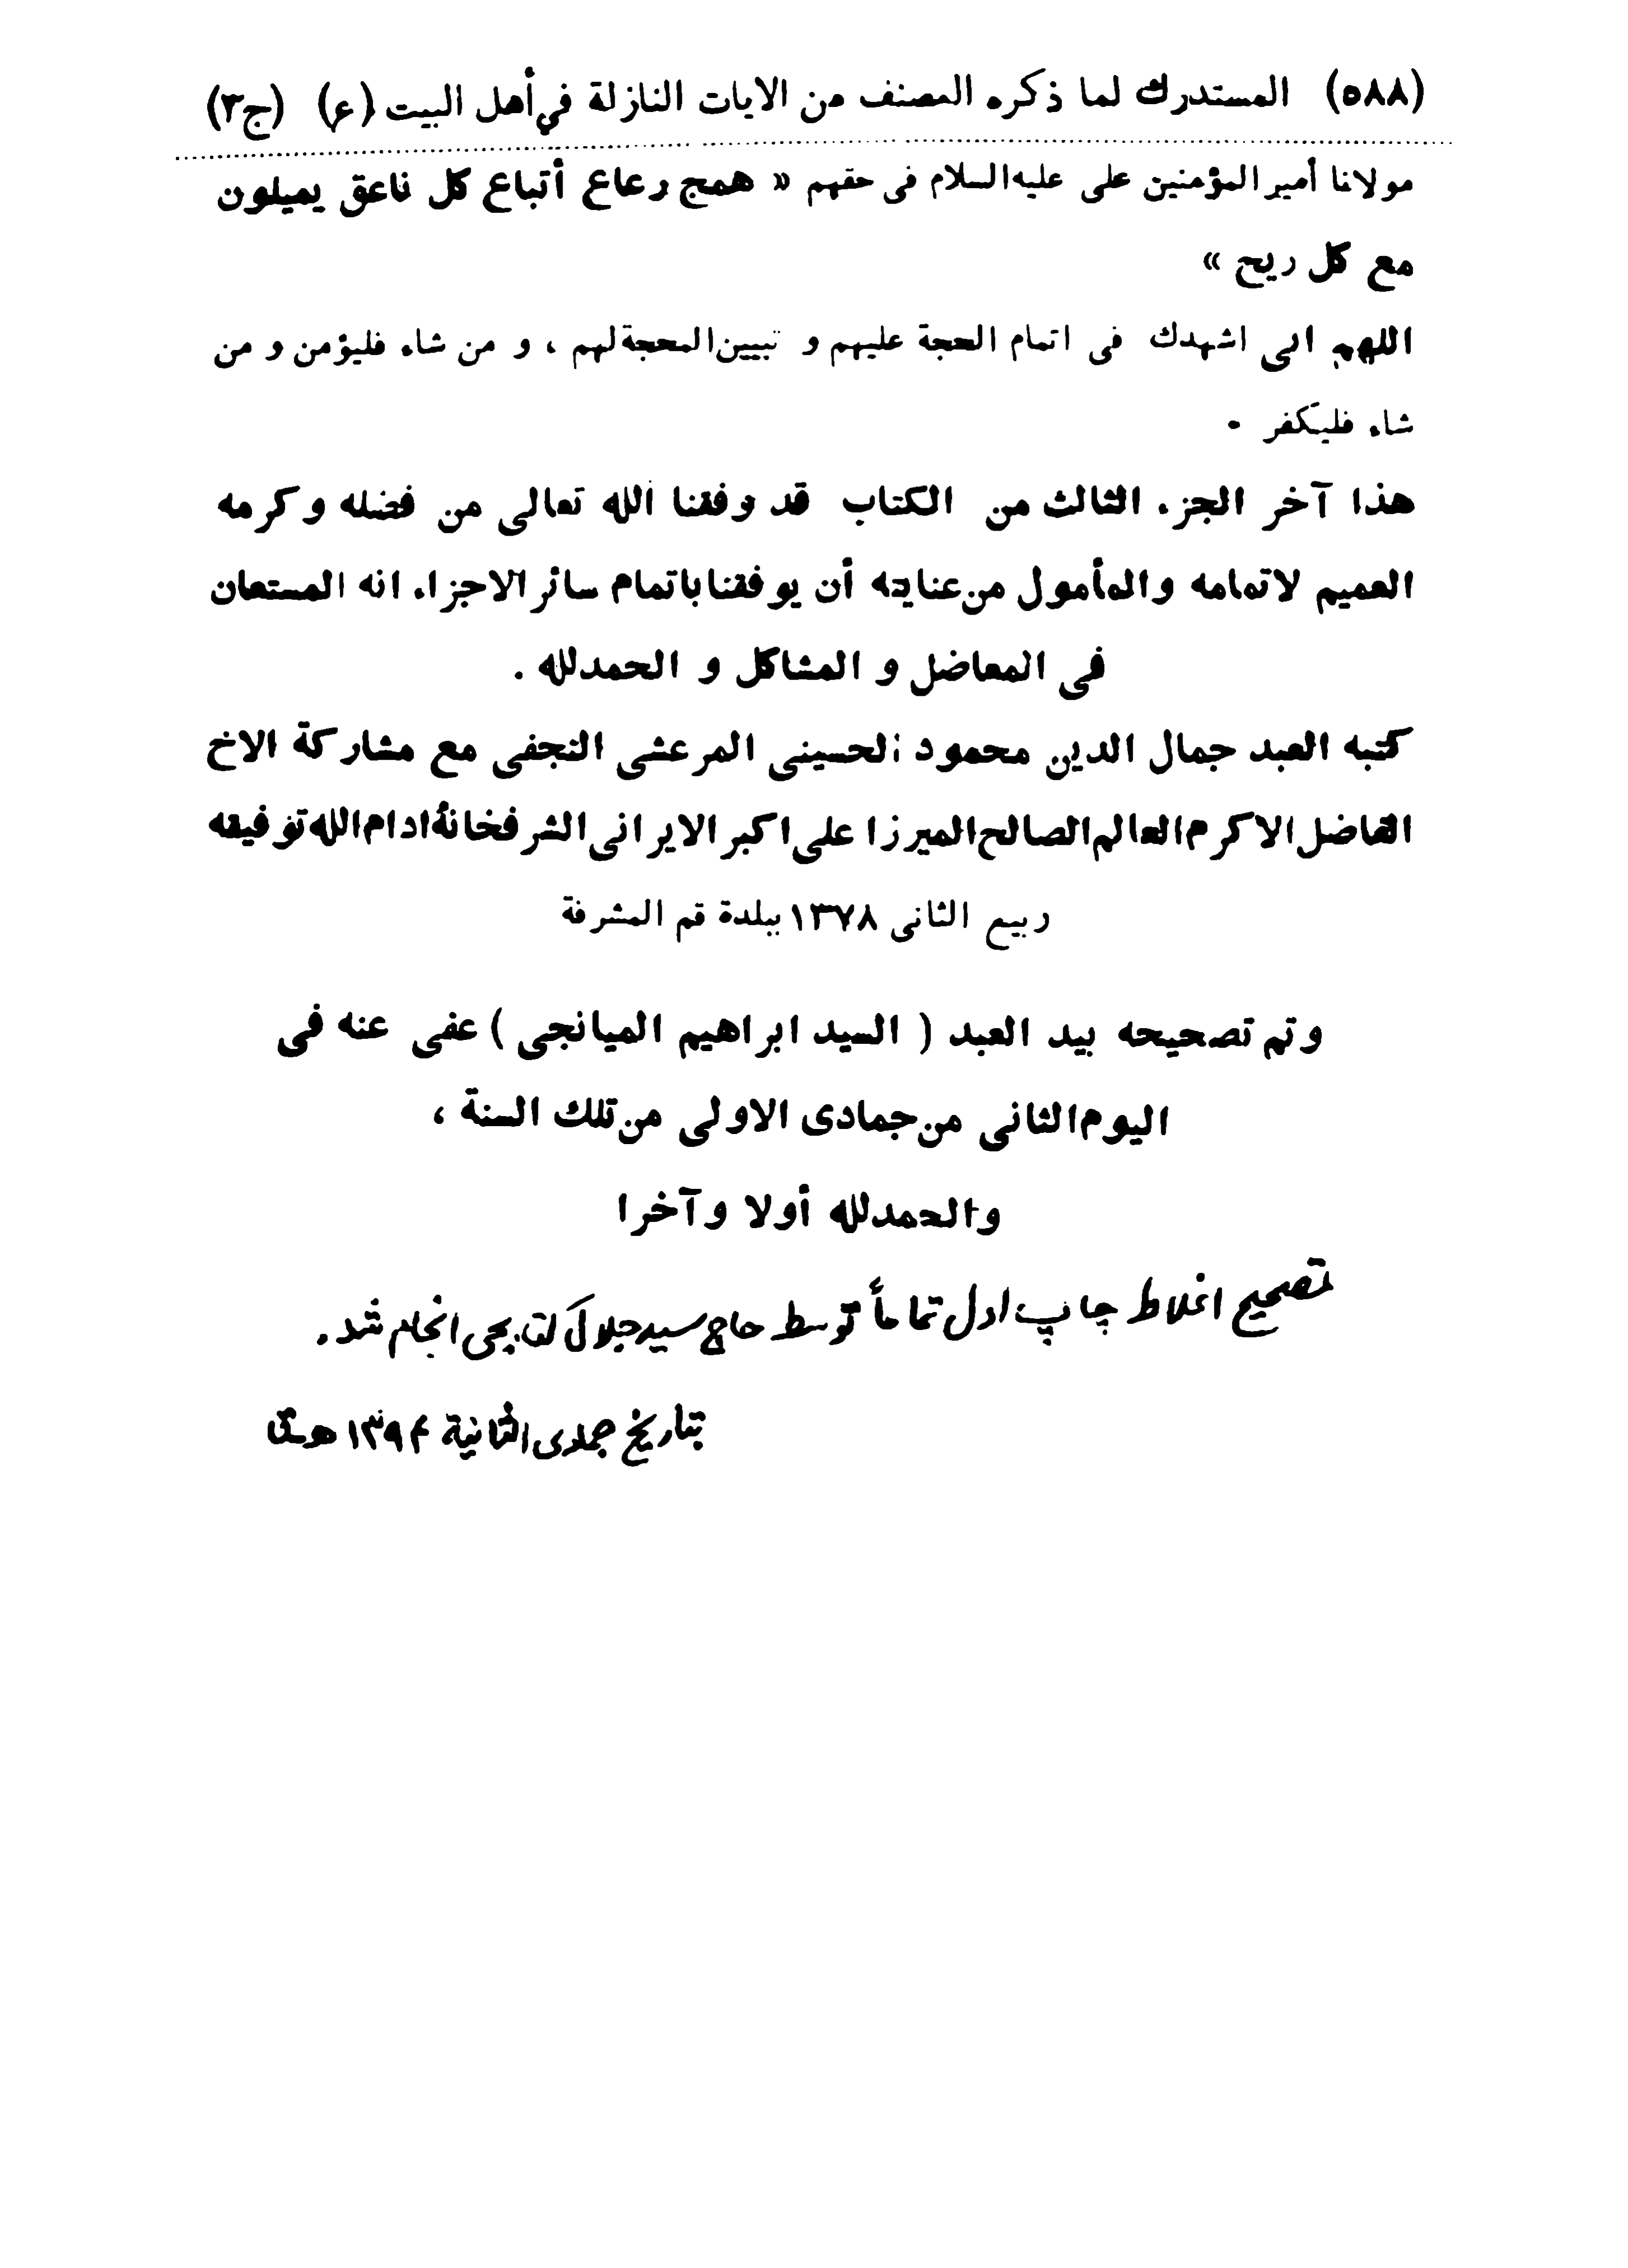 (٥٨٨) المستدرك لما ذكره المصنف من الايات النازلة في أهل البيت (ع) (ج٣)
مولانا أمير المؤمنين على عليه السلام فى حقهم « همج رعاع أتباع كل ناعق يميلون
مع كل ريح »
اللهم انى اشهدك فى اتمام الحجة عليهم و تبيين المحجة لهم ، و من شاء فليؤمن و من
شاء فليكفر .
هذا آخر الجزء الثالث من الكتاب قد وفقنا الله تعالى من فضله وكرمه
العميم لاتمامه والمأمول من عنايته أن يوفقنا باتمام سائر الاجزاء انه المستعان
فى المعاضل و المشاكل و الحمدلله .
كتبه العبد جمال الدين محمود الحسينى المرعشى النجفى مع مشاركة الاخ
الفاضل الاكرم العالم الصالح الميرزا على اكبر الايرانى الشرفخانهٔ ادام الله توفيقه
ربيع الثانى ١٣٧٨ ببلدة قم المشرفة
وتم تصحيحه بيد العبد ( السيد ابراهيم الميانجى ) عفى عنه فى
اليوم الثانى من جمادى الاولى من تلك السنة ،
والحمدلله أولا وآخرا
تصحيح اغلاط چاپ اول تماماً توسط حاج سيد جلال كتابچى انجام شد.
بتاريخ جمادى الثانية ١٣٩۴ هـ ق